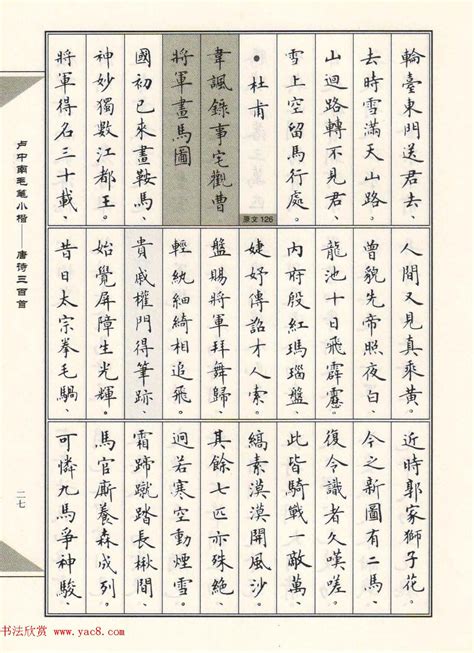 輪臺東門送君去、
去時雪滿天山路。
山迴路轉不見君、
雪上空留馬行處。
•杜甫
韋諷錄事宅觀曹
將軍畫馬圖
原文126
國初已來畫鞍馬、
神妙獨數江都王。
將軍得名三十載、
人間又見真乘黃。
曾貌先帝照夜白、
龍池十日飛霹靂。
內府殷紅瑪瑙盤、
婕妤傳詔才人索。
盤賜將軍拜舞歸、
輕紈細綺相追飛。
貴戚權門得筆跡、
始覺屏障生光輝。
昔日太宗拳毛騧、
近時郭家獅子花。
今之新圖有二馬、
復令識者久嘆嗟。
此皆騎戰一敵萬、
縞素漠漠開風沙。
其餘七匹亦殊絕、
迥若寒空動煙雪。
霜蹄蹴踏長楸間、
馬官廝養森成列。
可憐九馬爭神駿、
卢中南毛笔小楷 唐诗三百首
二七
书法欣赏 www.yac8.com